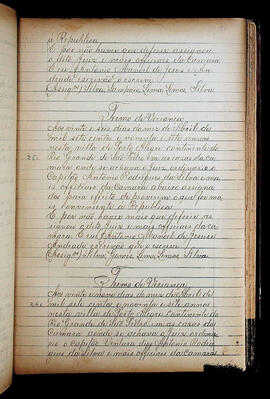 a Republica
E por não haver que deferir assignou
o dito Juiz e mais officiais da Camara
E eu Antonio Manoel de Jesus e An-
drade escrivão o escrevi
(Assig.os) Silva, Sampaio, Lima, Lemos, Silva
Termo de Veriança
Aos vinte e seis dias do mez de Abril de
mil sete centos e noventa e sete annos
nesta villa de Porto Alegre Continente do
Rio Grande de São Pedro em as casas da ca-
mara onde se achava o Juiz ordinario o
Capitão Antonio Rodrigues da Silva e ma-
is officiais da Camara abaixo assigna-
dos para efeito de proverem o que for ma-
is conveniente a Republica
E por não haver mais que deferir as-
signou o dito Juiz e mais officiais da ca-
mara. E eu Antonio Manoel de Jesus e
Andrade escrivão que o escrevi
(Assig.os) Silva, Lima, Lemos, Silva
Termo de Veriança
Aos vinte e nove dias do mez de Abril de
mil sete centos e noventa e sete annos
nesta villa de Porto Alegre Continente do
Rio Grande de São Pedro em as casas da
Camara aonde se achava o Juiz ordina-
rio o Capitão Ventura dos Antonio Rodri-
gues da Silva e mais officiais da Camara